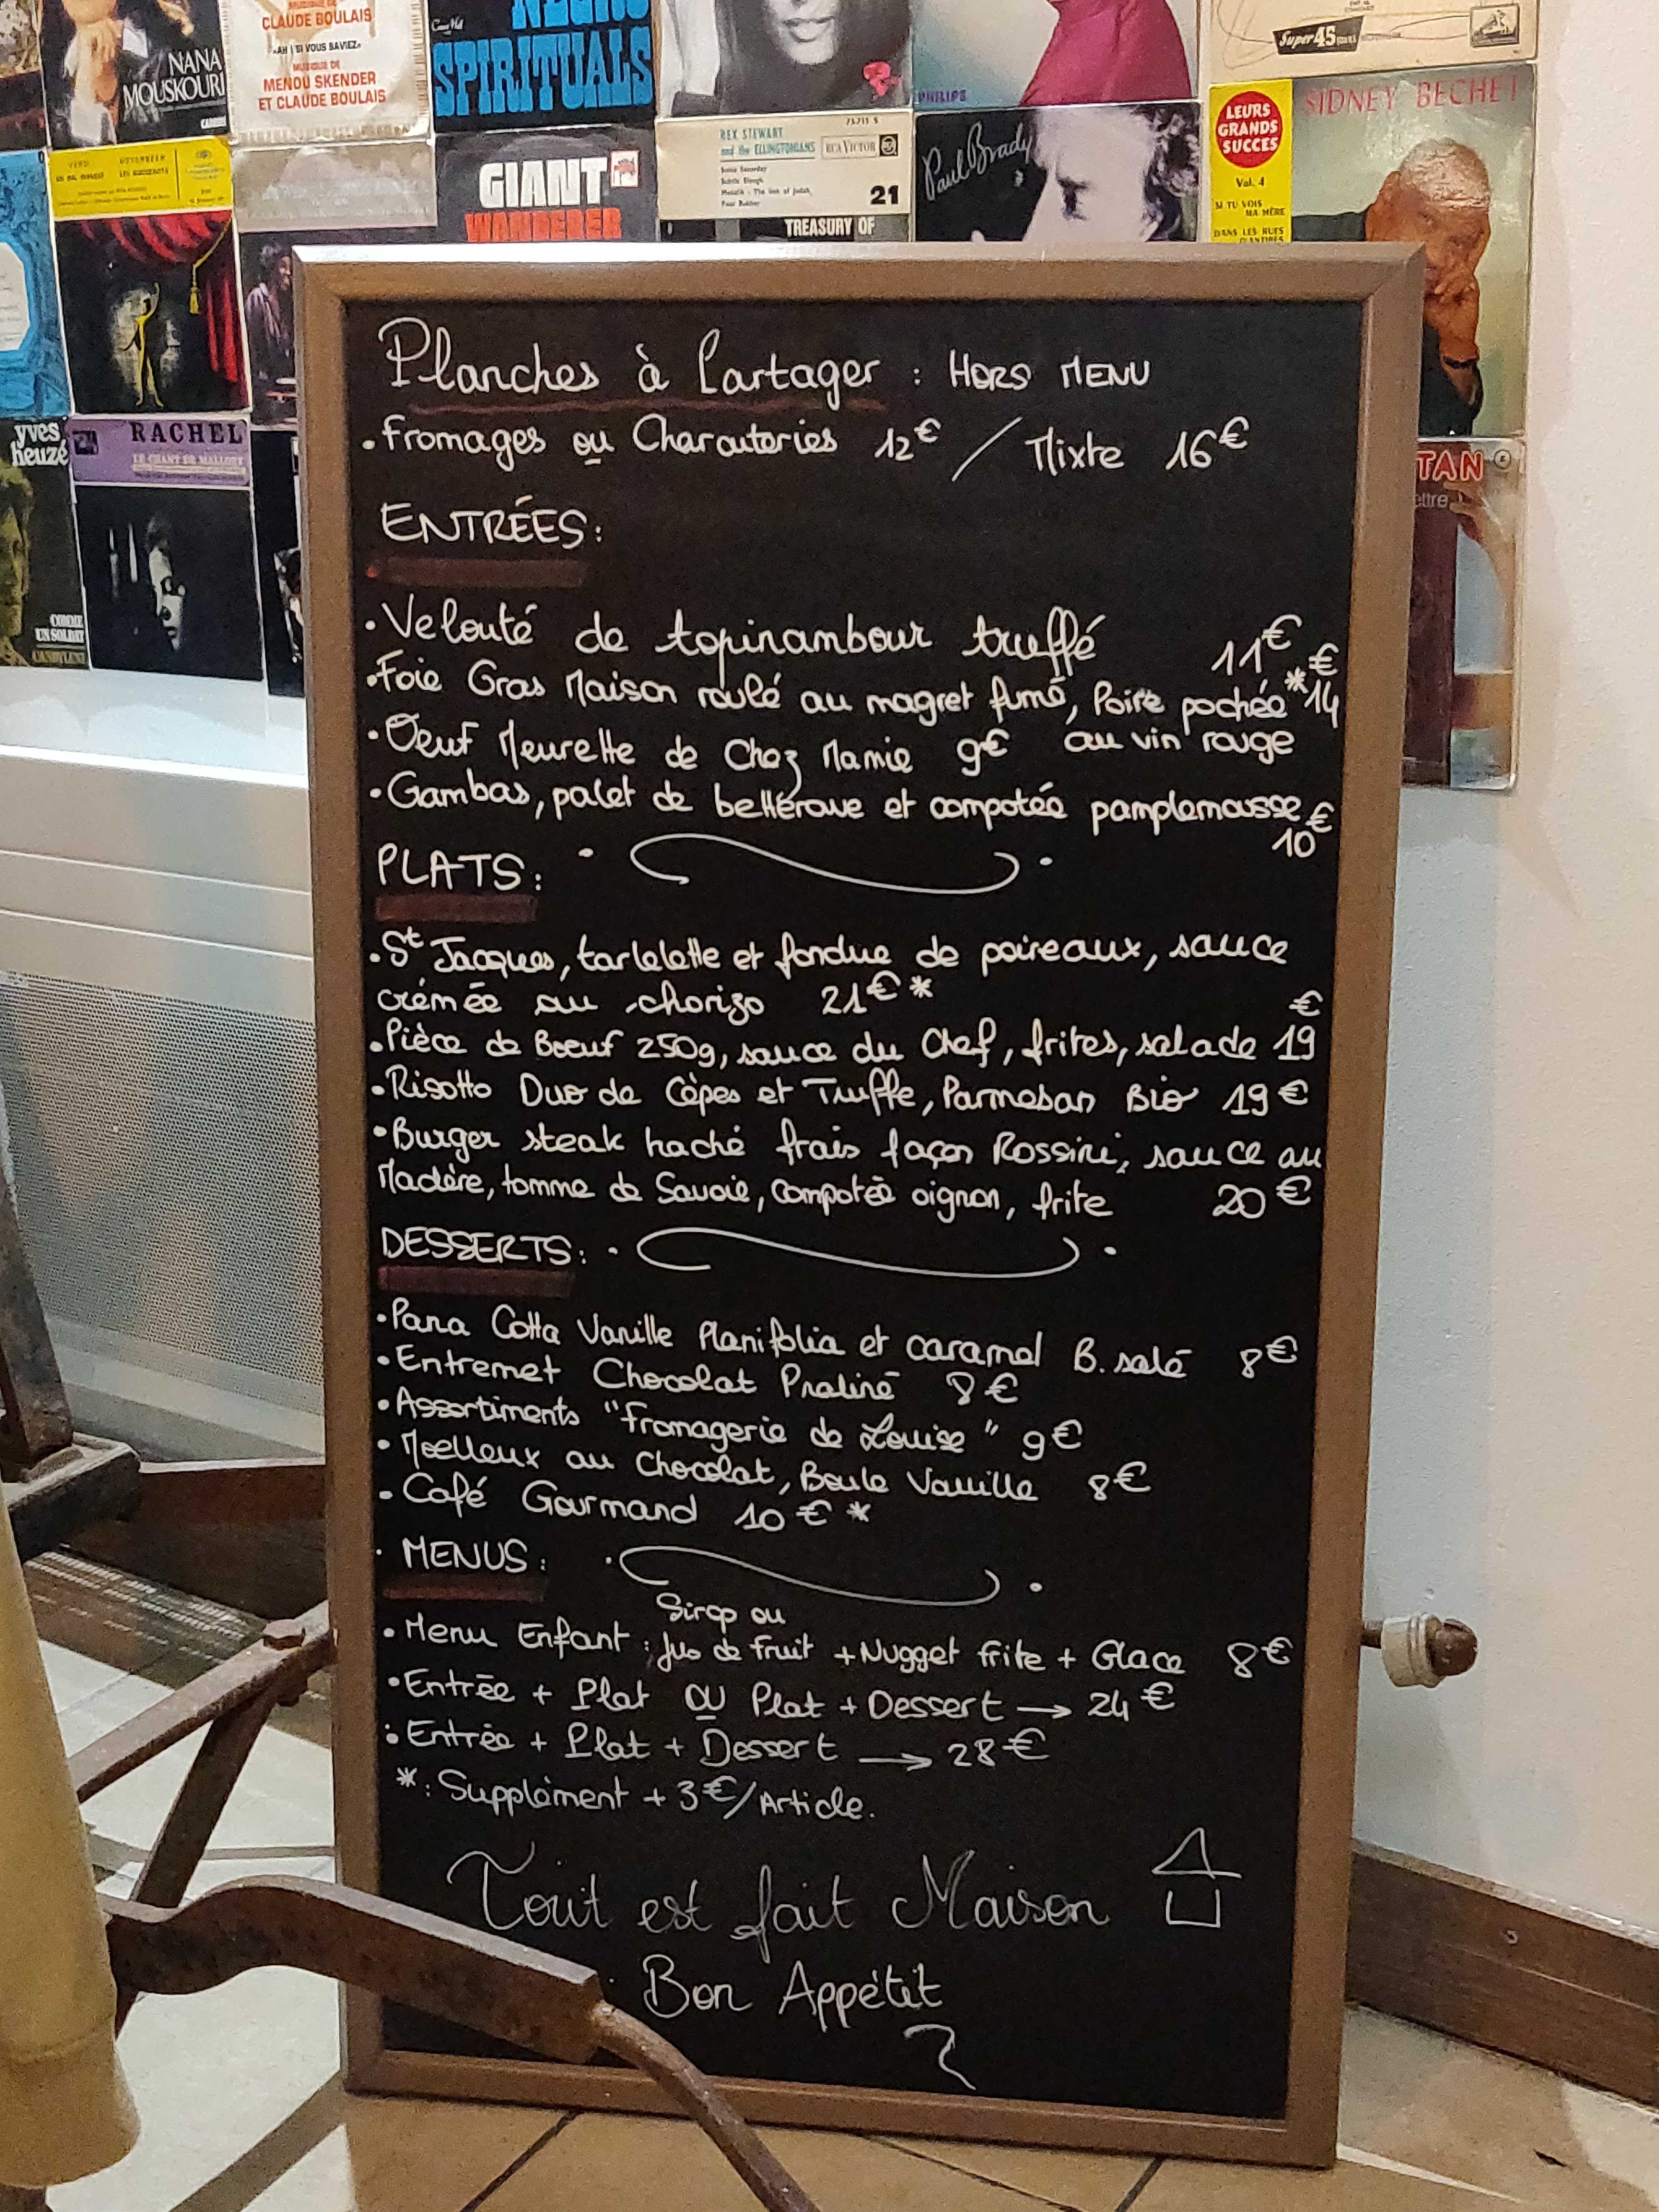 MUSIQUE DE
CLAUDE BOULAIS
«AH ! SI VOUS SAVIEZ»
MUSIQUE DE
MENOU SKENDER
ET CLAUDE BOULAIS
NANA
MOUSKOURI
NEGRO
SPIRITUALS
PHILIPS
Super 45
SIDNEY BECHET
LEURS
GRANDS
SUCCES
Vol. 4
SI TU VOIS
MA MÈRE
DANS LES RUES
D'ANTIBES
GIANT
WANDERER
REX STEWART
and the ELLINGTONIANS
RCA VICTOR
21
TREASURY OF
Paul Brady
yves
heuzé
RACHEL
LE CHANT DE MALLORY
COMME
UN SOLDAT
TAN
Planches à Partager : HORS MENU
• Fromages ou Charcuteries 12€ / Mixte 16€
ENTRÉES:
• Velouté de topinambour truffé 11€
• Foie Gras Maison roulé au magret fumé, Poire pochée *14€
au vin rouge
• Oeuf Meurette de Chez Mamie 9€
• Gambas, palet de betterave et compotée pamplemousse 10€
PLATS:
• St Jacques, tartelette et fondue de poireaux, sauce
crémée au chorizo 21€*
• Pièce de Boeuf 250g, sauce du Chef, frites, salade 19€
• Risotto Duo de Cèpes et Truffe, Parmesan Bio 19€
• Burger steak haché frais façon Rossini, sauce au
Madère, tomme de Savoie, compotée oignon, frite 20€
DESSERTS:
• Pana Cotta Vanille Planifolia et caramel B. salé 8€
• Entremet Chocolat Praliné 8€
• Assortiments "Fromagerie de Louise" 9€
• Moelleux au Chocolat, Boule Vanille 8€
• Café Gourmand 10€*
• MENUS:
Sirop ou
• Menu Enfant : Jus de Fruit + Nugget frite + Glace 8€
• Entrée + Plat OU Plat + Dessert → 24€
• Entrée + Plat + Dessert → 28€
*: Supplément + 3€/Article.
Tout est fait Maison
Bon Appétit